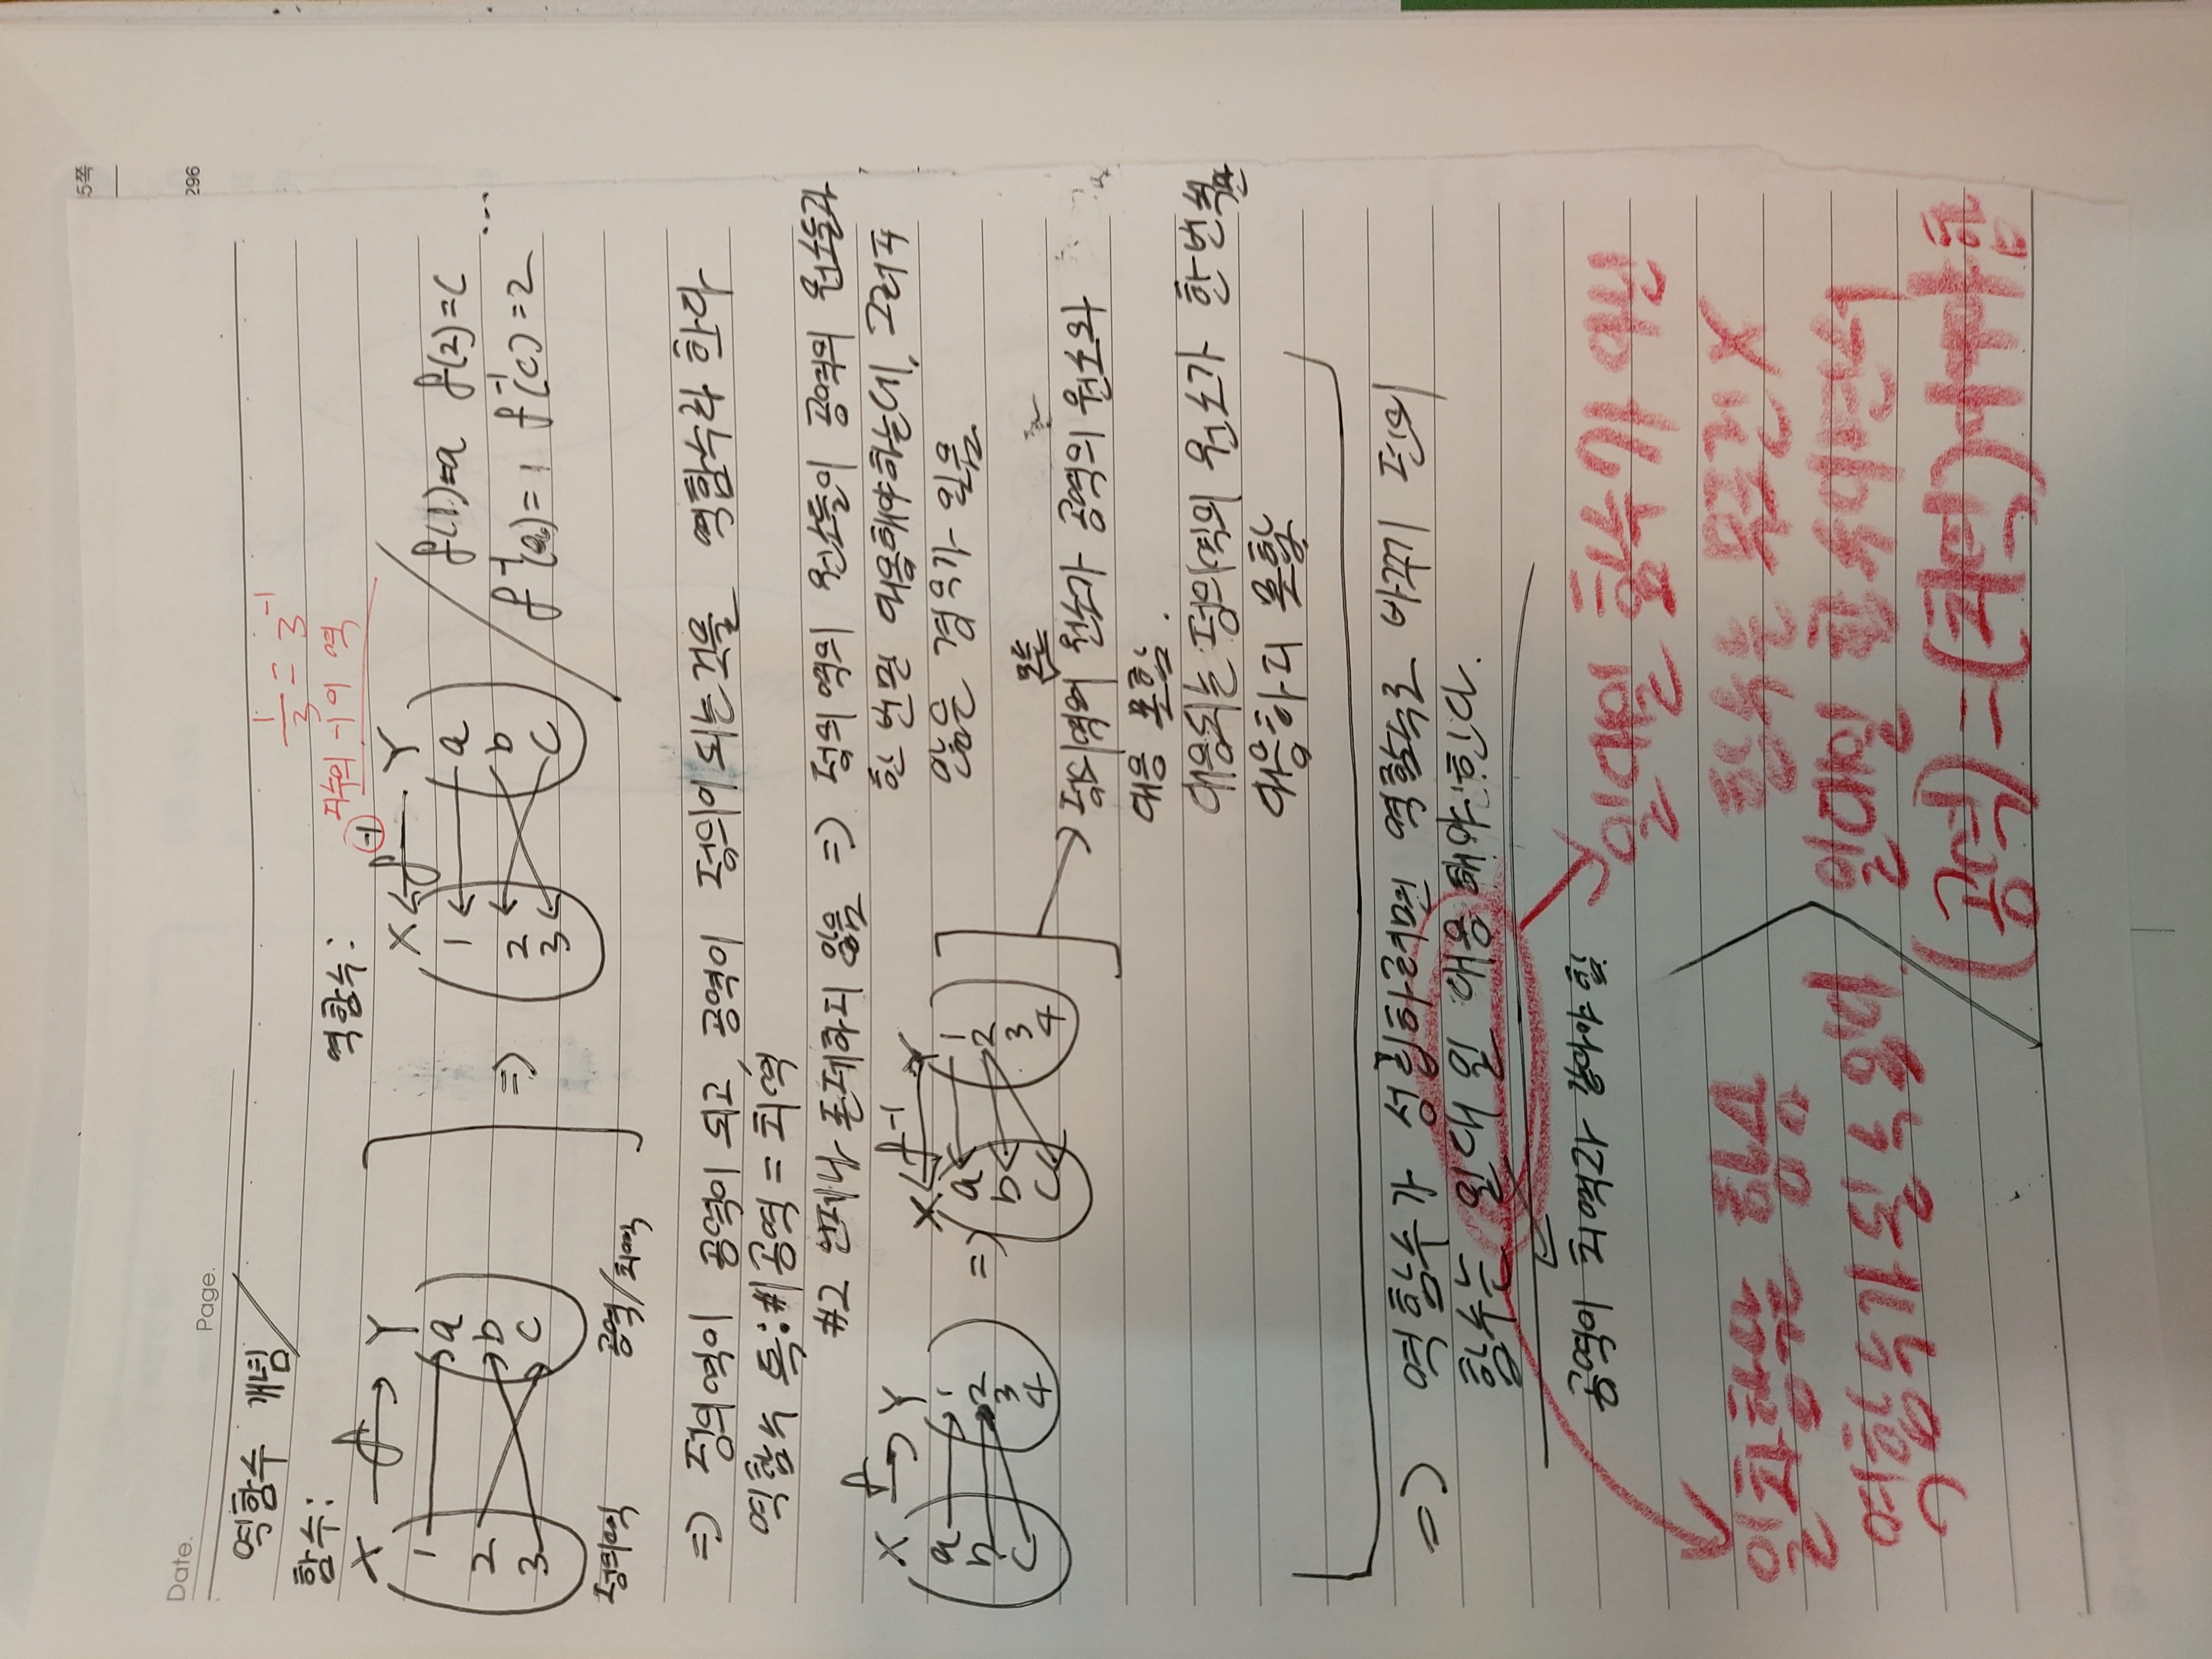 5쪽
296
Date.
Page.
역함수 개념
함수:
X f Y
1 a
2 b
3 c
정의역 공역/치역
1/3 = 3⁻¹
지수의 -1이 역
역함수:
X f⁻¹ Y
1 a
2 b
3 c
f(1)=a f(2)=c
f⁻¹(a)=1 f⁻¹(c)=2 ...
=> 정의역이 공역이 되고, 공역이 정의이 되는것을 역함수라 한다
역함수 특:#1공역 = 치역
#2 언제나 존재하지 않음 => 정의역의 원소들이 공역의 원소들과
한 번만 대응해야하는데, 그러지
않은 경우가 있음
X f Y
a 1
b 2
c 3
4
=>
X f⁻¹ Y
a 1
b 2
c 3
4
모든
정의역의 원소가 공역의 원소와
대응 못함.
대응되는 정의역의 원소가 한번씩만
대응하지 못함
=> 역함수가 성립하려면 역함수로 바꾸기 전의
함수는 일대일 대응해야 한다.
공역이 치역과 같아야 함
일차함수는 항상
역함수가 될 수 있다
일대일 함수가 아닌
함수는 무조건 X
일대일 함수이면서
(공역)=(치역)이어야 함